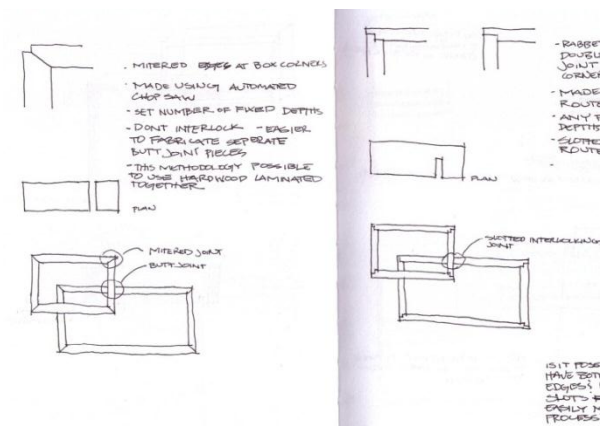 - MITERED EDGES AT BOX CORNERS
- MADE USING AUTOMATED
CHOP SAW
- SET NUMBER OF FIXED DEPTHS
- DONT INTERLOCK - EASIER
TO FABRICATE SEPERATE
BUTT JOINT PIECES
- THIS METHODOLOGY POSSIBLE
TO USE HARDWOOD LAMINATED
TOGETHER
PLAN
MITERED JOINT
BUTT JOINT
- RABBE
DOUBL
JOINT
CORNE
- MADE
ROUTE
- ANY
DEPTHS
- SLOTTED
ROUTE
PLAN
SLOTTED INTERLOCKING
JOINT
IS IT POSS
HAVE BOTH
EDGES?
SLOTS
EASILY M
PROCESS